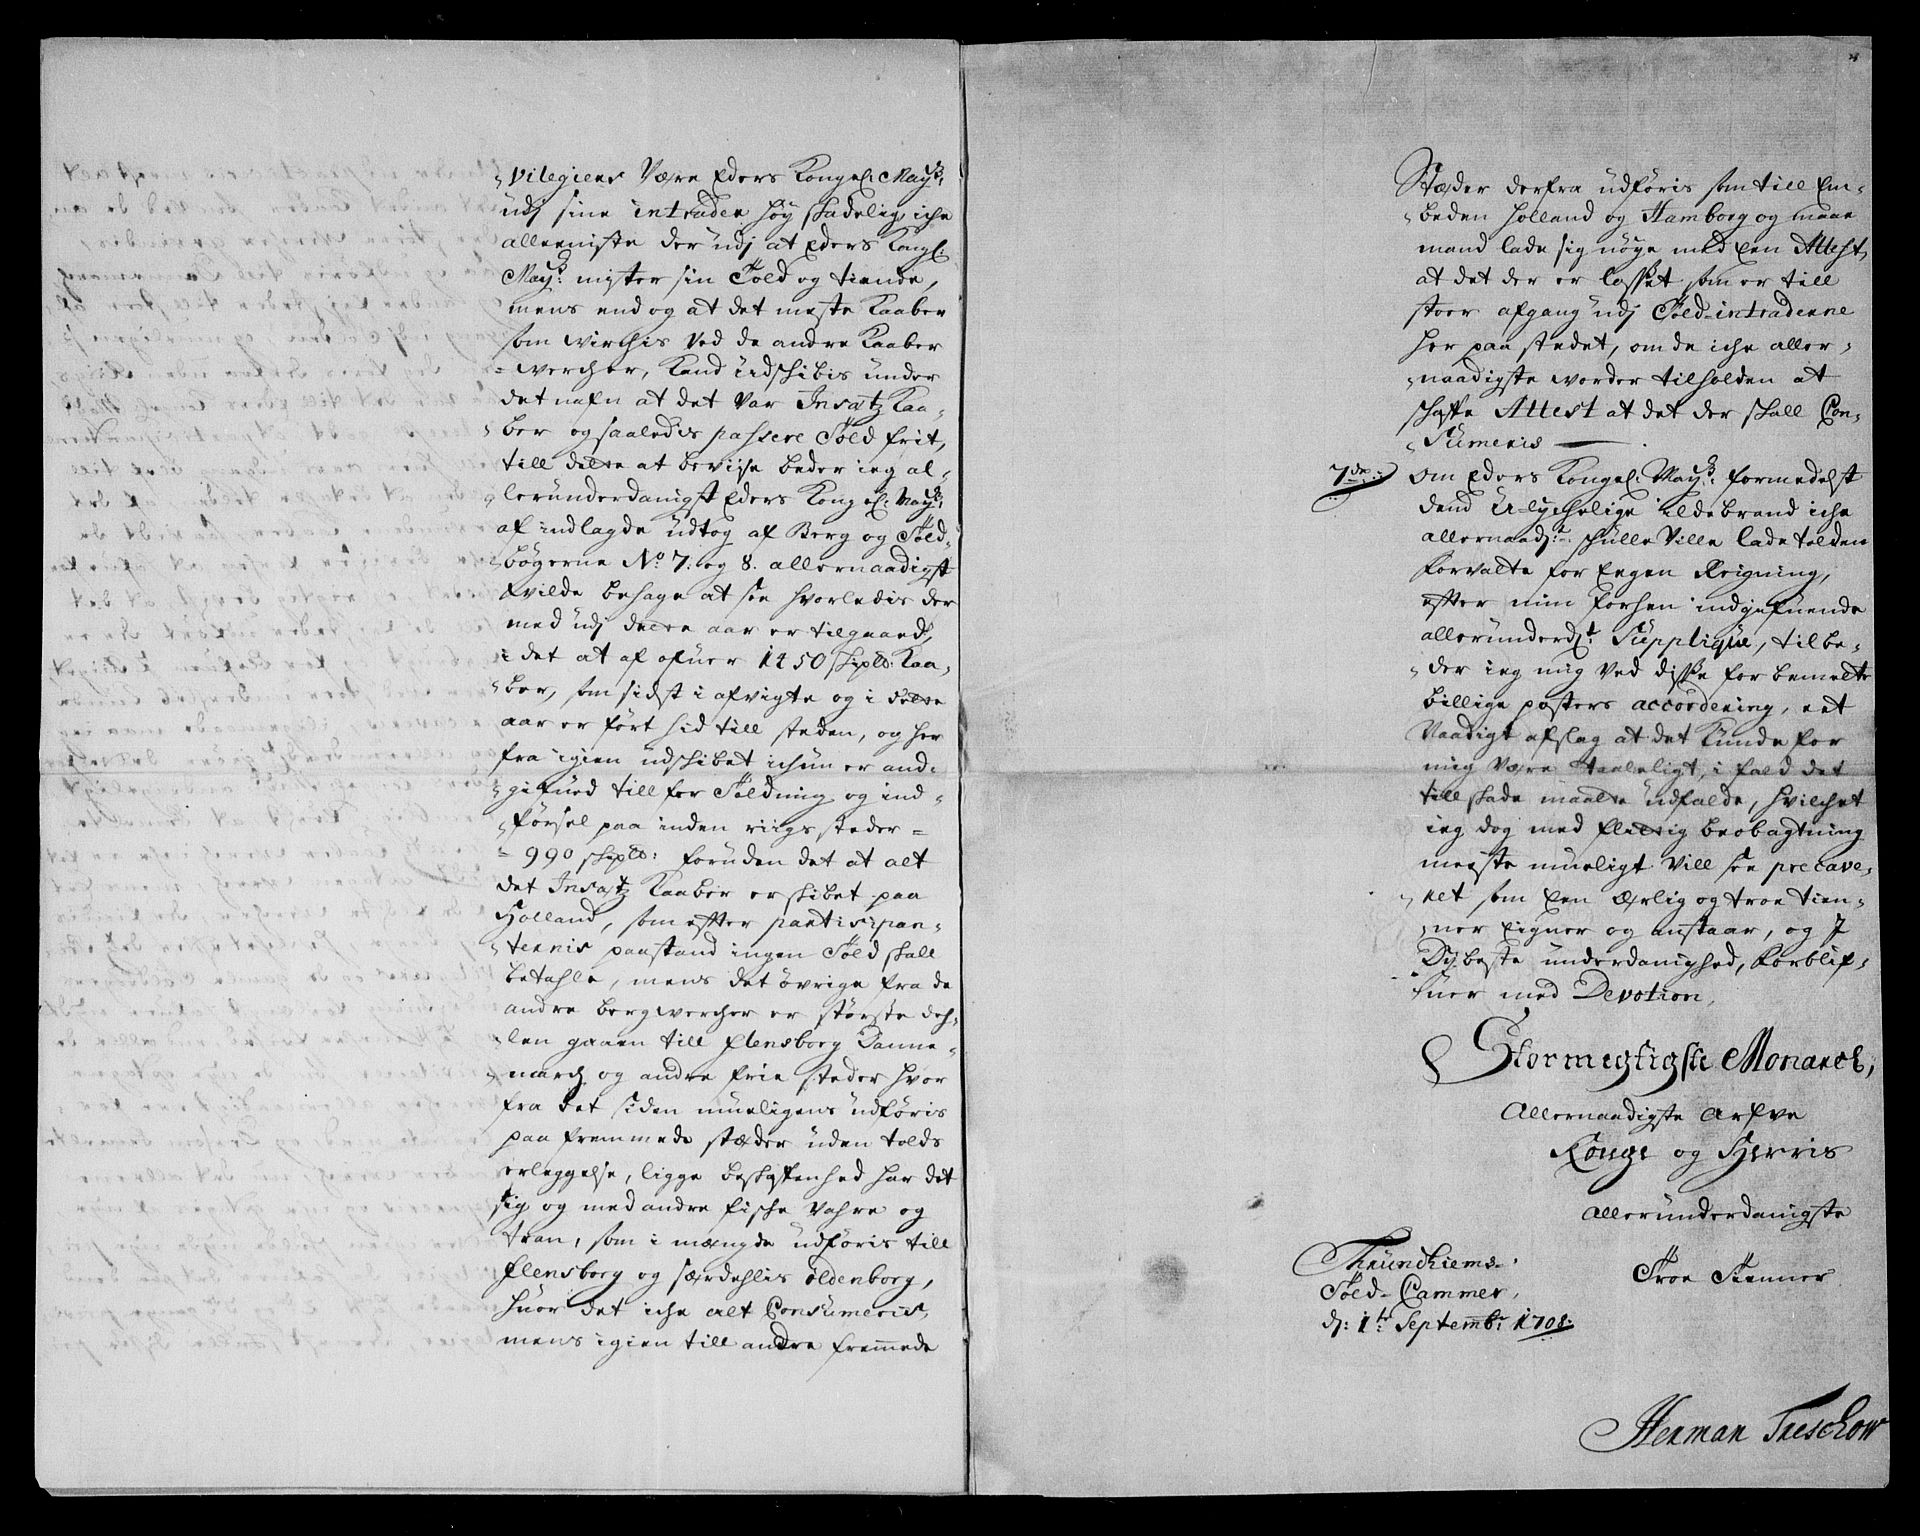 -vilegier Være Eders Kongel: May:ts
udj sine intrader høy skadelig, iche
alleeniste der udj at Eders Kongl:
May:ts mister sin Told og tiende,
mens end og at det meste Kaaber
som wirchis ved de andre Kaaber
=wercher, Kand udskibis under
det nafn at det var Insatz Kaa-
-ber og saaledis passere Told frit,
till dette at bevise beder ieg al-
-lerunderdanigst Eders Kongel: May:ts
af indlagde udtog af Berg og Told-
-bøgerne No 7. og 8. allernaadigst
vilde behage at see hvorledis der
med udj dette aar er tilgaaed,
i det at af ofuer 1450 skipld: Kaa-
-ber, som sidst i afvigte og i dette
aar er ført hid till steden, og her
fra igien udskibet ichun er and-
-gifued till for Toldning og ind-
-førsel paa inden riigs steder =
=990 skipld: foruden det at alt
det Insatz Kaaber er skibet paa
Holland, som efter partisipan-
-ternis paastand ingen Told skall
betahle, mens det øvrige fra de
andre bergwercher er største deh-
-len gaaen till Flensborg Danne-
-march og andre frie steder hvor
fra det siden mueligens udføris
paa fremmede stæder uden tolds
erleggelse, ligge beskaffenhed har det
sig og med andre fische Vahre og
tran, som i mængde udføris till
Flensborg og særdehlis Oldenborg,
huor det iche alt Consumeris,
mens igien till andre fremmede
Stæder derfra udføris som till Em-
-beden Holland og Hamborg og maae
mand lade sig nøye med een Attest,
at det der er losset som er till
stoer afgang udj Told-intraderne
her paa stedet, om de iche aller-
-naadigste worder tilholden at
skaffe Attest at det der skall Con-
-sumeris
7de: Om Eders Kongel: May:ts formedelst
dend U-lychelige ildebrand iche
allernaad:te skulle Ville lade tolden
forvalte for Eegen Reigning,
efter min forhen indgifuende
allerunderd:t Supplique, tilbe-
-der ieg mig ved disse for bemelte
billige posters accordering, eet
Naadigt afslag at det kunde for
mig være taaleligt, i fald det
till skade maatte udfalde, hvilchet
ieg dog med flittig beobagtning
meeste mueligt vill see precave-
-ret som Een ærlig og troe tien-
-ner Eigner og anstaar, og J
Dybeste underdanighed, forblif-
-fuer med Devotion,
Stormegtigste Monarch,
Allernaadigste Arfve
Konge og Herris
Allerunderdanigste
Thrundhiems
Told-Cammer,
d: 1te Septemb: 1708:
Troe Tienner
Herman Treschow